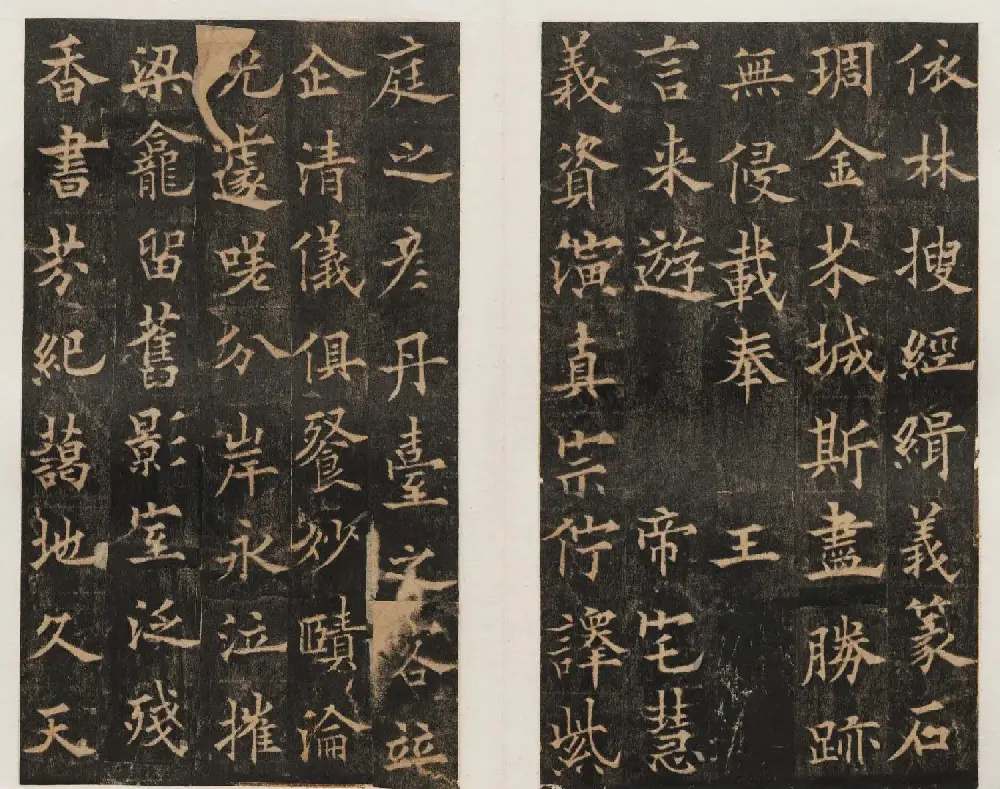 依林搜經緝義篆石
琱金芥城斯盡勝跡
無侵載奉 王
言来遊 帝宅慧
義資演真宗佇譯紫
庭之彦丹臺之谷並
企清儀俱餐妙賾淪
光遽嗟分岸永泣摧
梁龕留舊影室泛殘
香書芬紀藹地久天